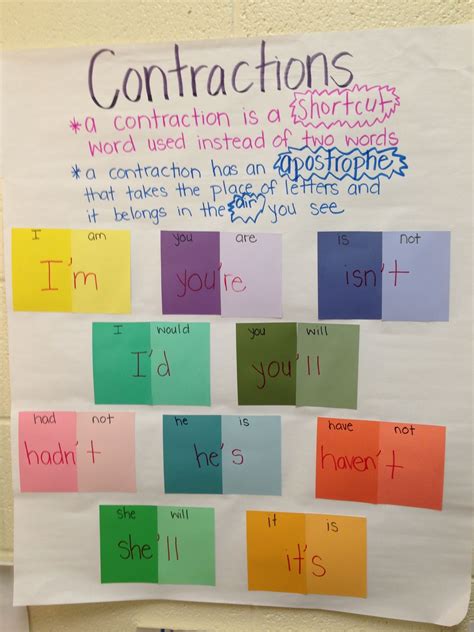 Contractions
* a contraction is a shortcut
word used instead of two words
* a contraction has an apostrophe
that takes the place of letters and
it belongs in the air you see
I am
I'm
you are
you're
is not
isn't
I would
I'd
you will
you'll
had not
hadn't
he is
he's
have not
haven't
she will
she'll
it is
it's